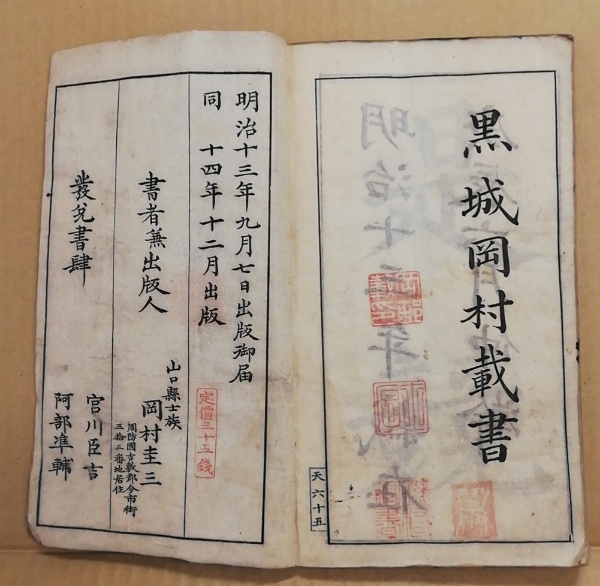 黒城岡村載書
天六十五
明治十三年九月七日出版御届
同 十四年十二月出版
定價三十五錢
書者兼出版人
山口縣士族
岡村圭三
周防國吉敷郡今市街
三拾三番地居住
發兌書肆
宮川臣吉
阿部準輔